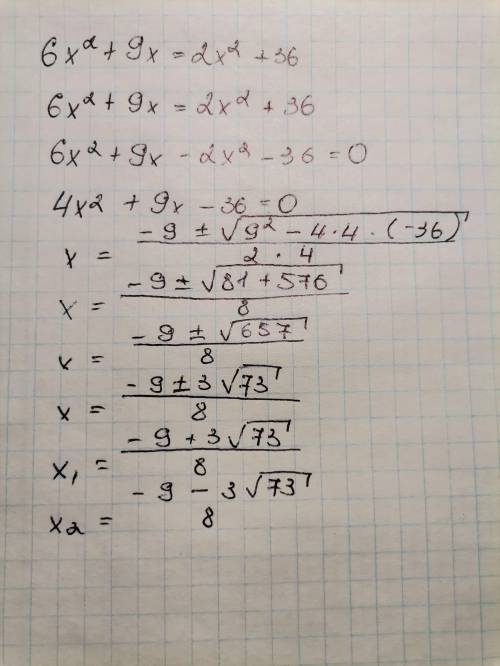 6x² + 9x = 2x² + 36
6x² + 9x = 2x² + 36
6x² + 9x - 2x² - 36 = 0
4x2 + 9x - 36 = 0
x = (-9 ± √(9² - 4·4·(-36))) / (2·4)
x = (-9 ± √(81 + 576)) / 8
x = (-9 ± √657) / 8
x = (-9 ± 3√73) / 8
x₁ = (-9 + 3√73) / 8
x₂ = (-9 - 3√73) / 8